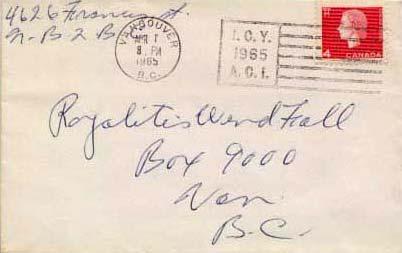 4626 Frances St.
N. B 2 B.C.
VANCOUVER
APR 1
8. PM
1965
B.C.
I.C.Y.
1965
A.C.I.
4 CANADA
Royalities Wend Fall
Box 9000
Van.
B.C.